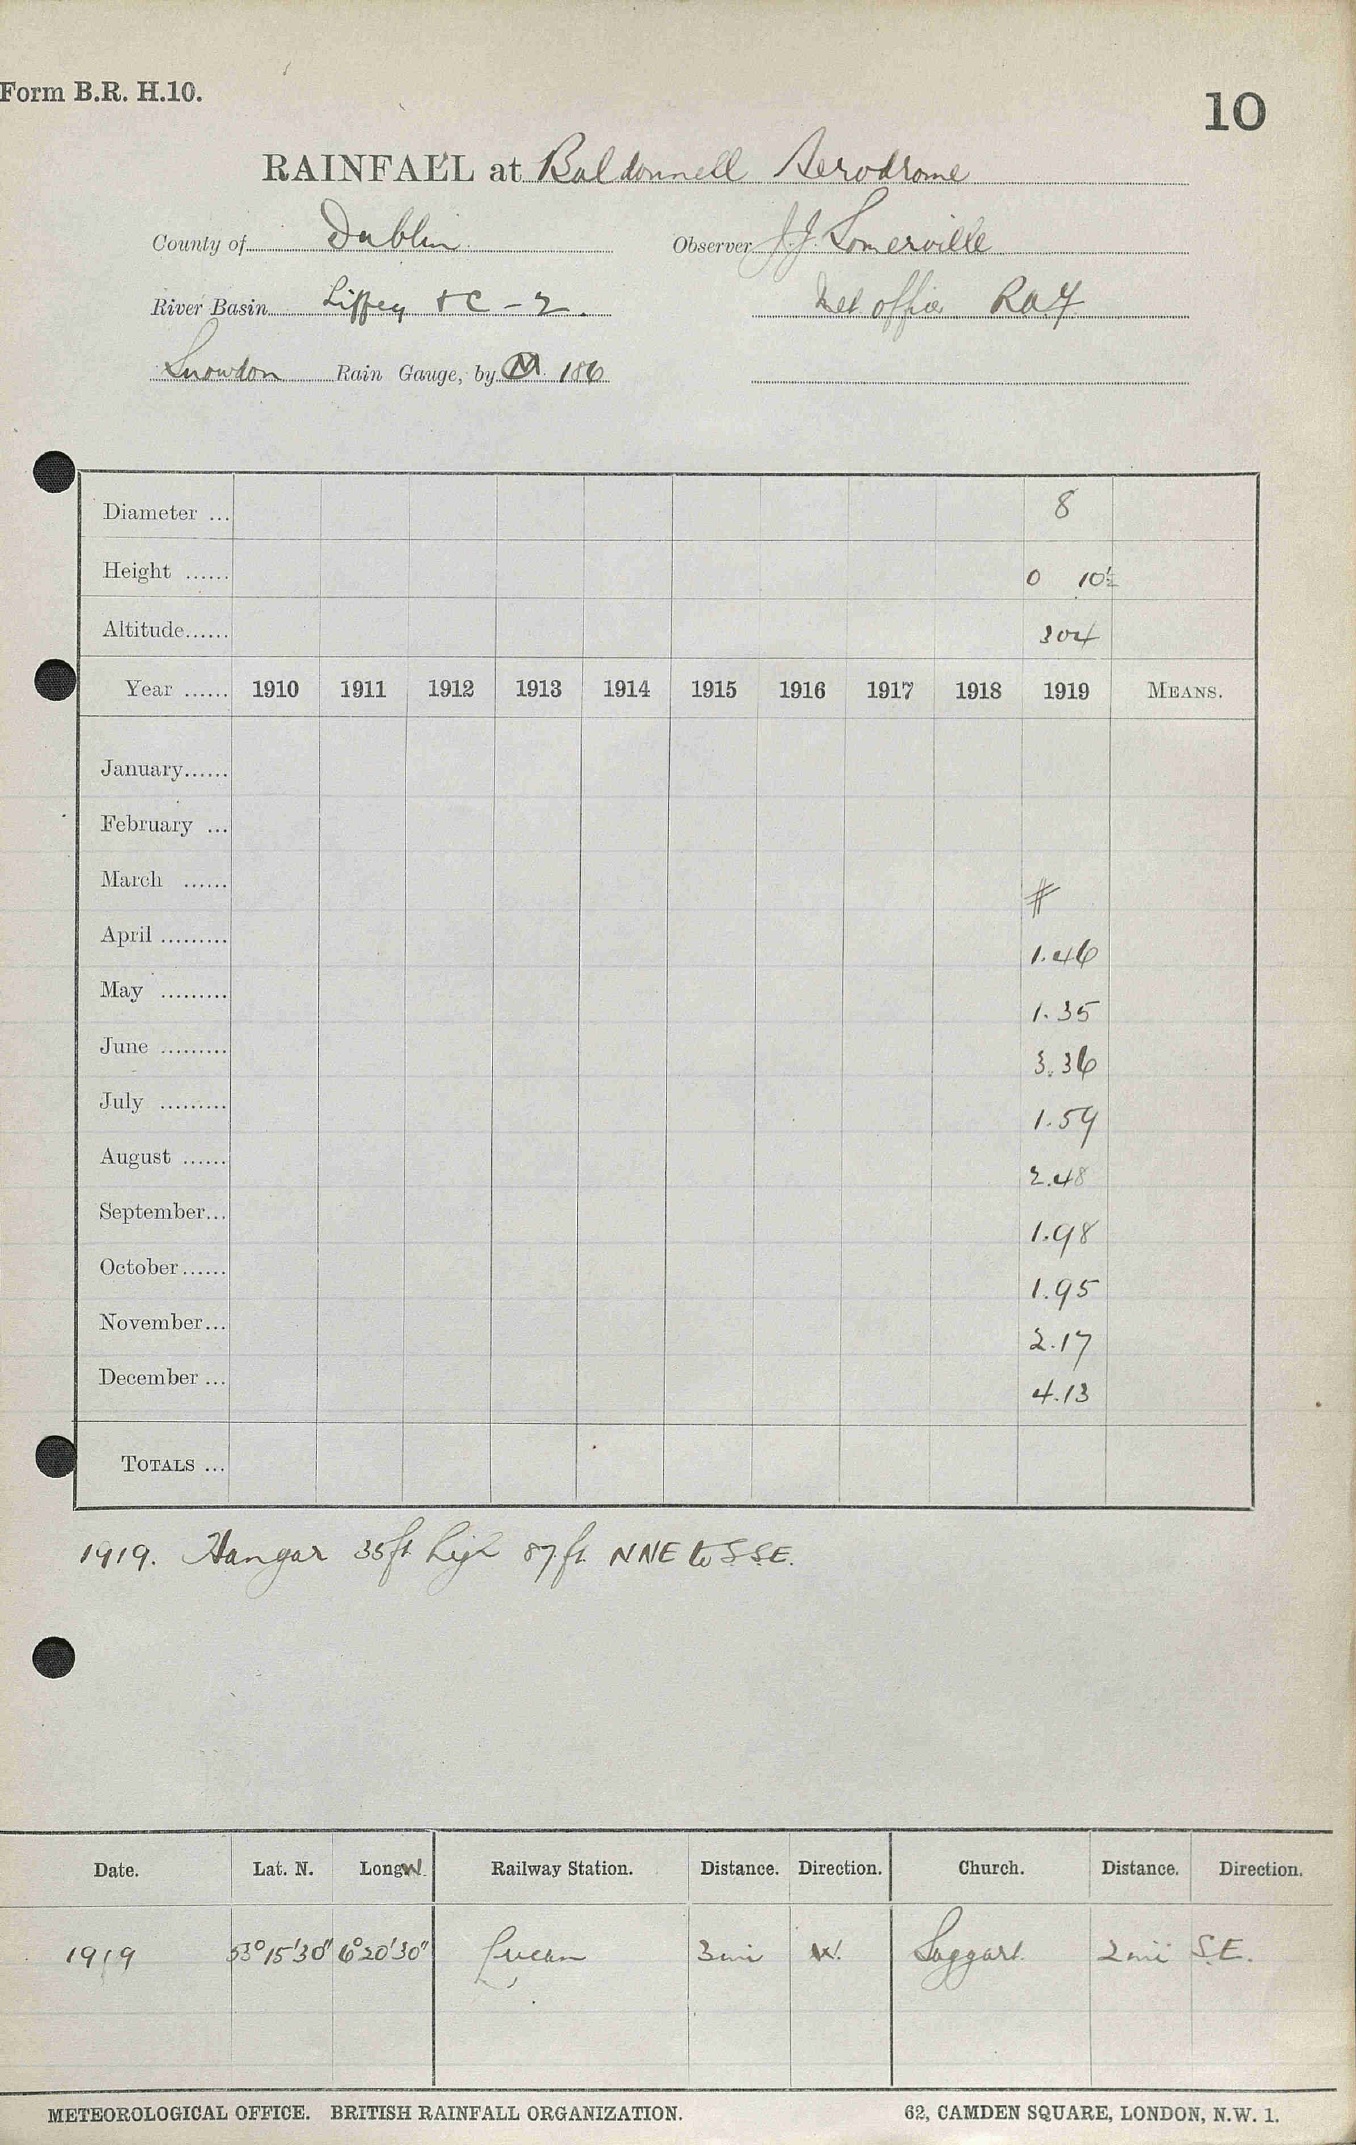 Form B.R. H.10.
10
RAINFALL at Baldonnell Aerodrome
County of Dublin Observer J.J. Somerville
River Basin Liffey & C - 2. Met office RAF
Snowdon Rain Gauge, by M 186
Diameter ... 8
Height ...... 0 10½
Altitude...... 304
Year ...... 1910 1911 1912 1913 1914 1915 1916 1917 1918 1919 MEANS.
January......
February ...
March ...... #
April ......... 1.46
May ......... 1.35
June ......... 3.36
July ......... 1.59
August ...... 2.48
September... 1.98
October...... 1.95
November... 2.17
December ... 4.13
TOTALS ...
1919. Hangar 35ft high 87ft NNE to S.S.E.
Date. Lat. N. Long W. Railway Station. Distance. Direction. Church. Distance. Direction.
1919 53°15'30" 6°20'30" Lucan 3 mi W. Saggart. 2 mi S.E.
METEOROLOGICAL OFFICE. BRITISH RAINFALL ORGANIZATION. 62, CAMDEN SQUARE, LONDON, N.W. 1.